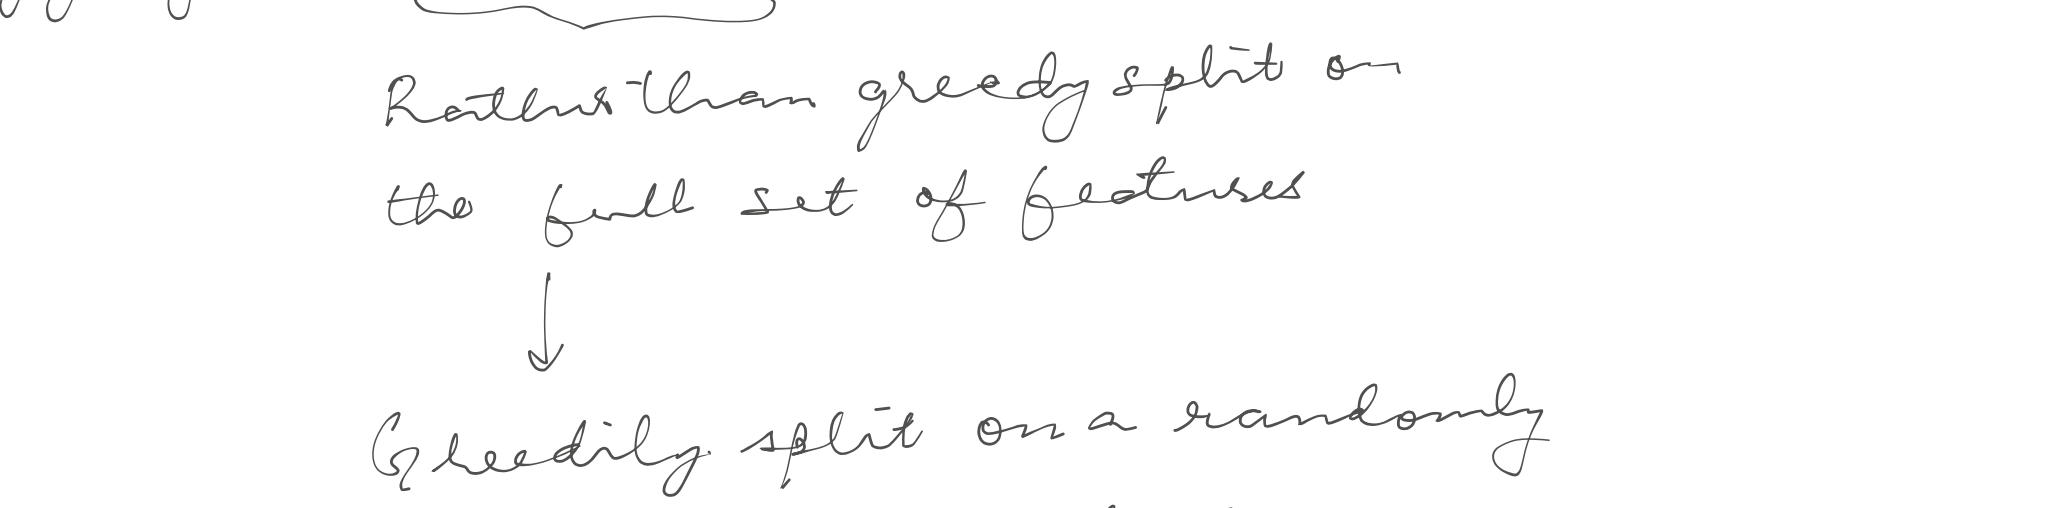 Rather than greedy split on
the full set of features
Greedily split on a randomly